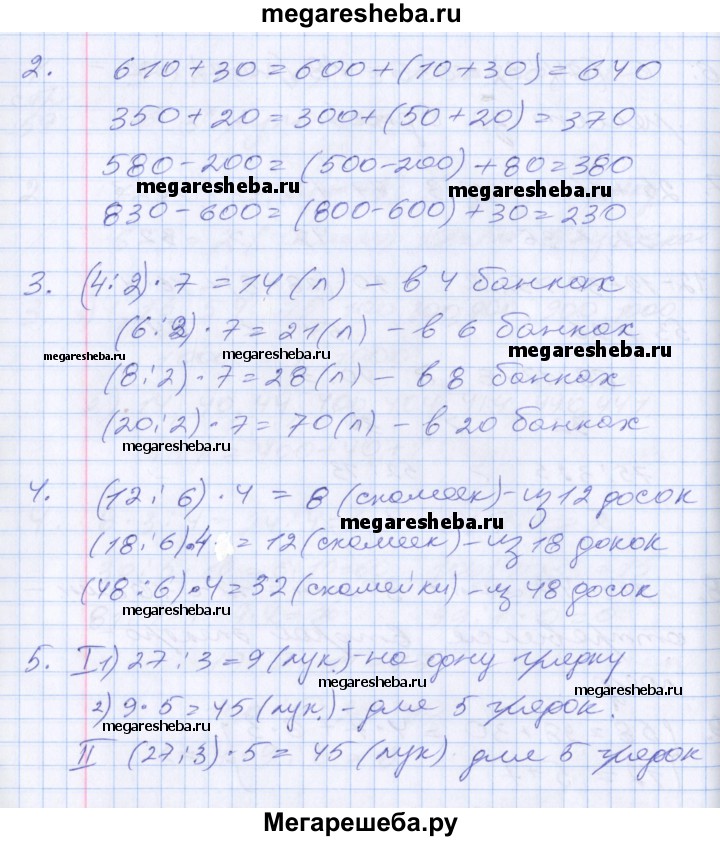 megaresheba.ru
2. 610 + 30 = 600 + (10 + 30) = 640
350 + 20 = 300 + (50 + 20) = 370
580 - 200 = (500 - 200) + 80 = 380
megaresheba.ru megaresheba.ru
830 - 600 = (800 - 600) + 30 = 230
3. (4 : 2) · 7 = 14 (л) - в 4 банках
(6 : 2) · 7 = 21 (л) - в 6 банках
megaresheba.ru megaresheba.ru megaresheba.ru
(8 : 2) · 7 = 28 (л) - в 8 банках
(20 : 2) · 7 = 70 (л) - в 20 банках
megaresheba.ru
4. (12 : 6) · 4 = 8 (скамеек) - из 12 досок
megaresheba.ru
(18 : 6) · 4 = 12 (скамеек) - из 18 докок
(48 : 6) · 4 = 32 (скамейки) - из 48 досок
megaresheba.ru
5. I 1) 27 : 3 = 9 (лук.) - на одну грядку
megaresheba.ru megaresheba.ru
2) 9 · 5 = 45 (лук.) - для 5 грядок.
megaresheba.ru
II (27 : 3) · 5 = 45 (лук) для 5 грядок
Мегарешеба.ру